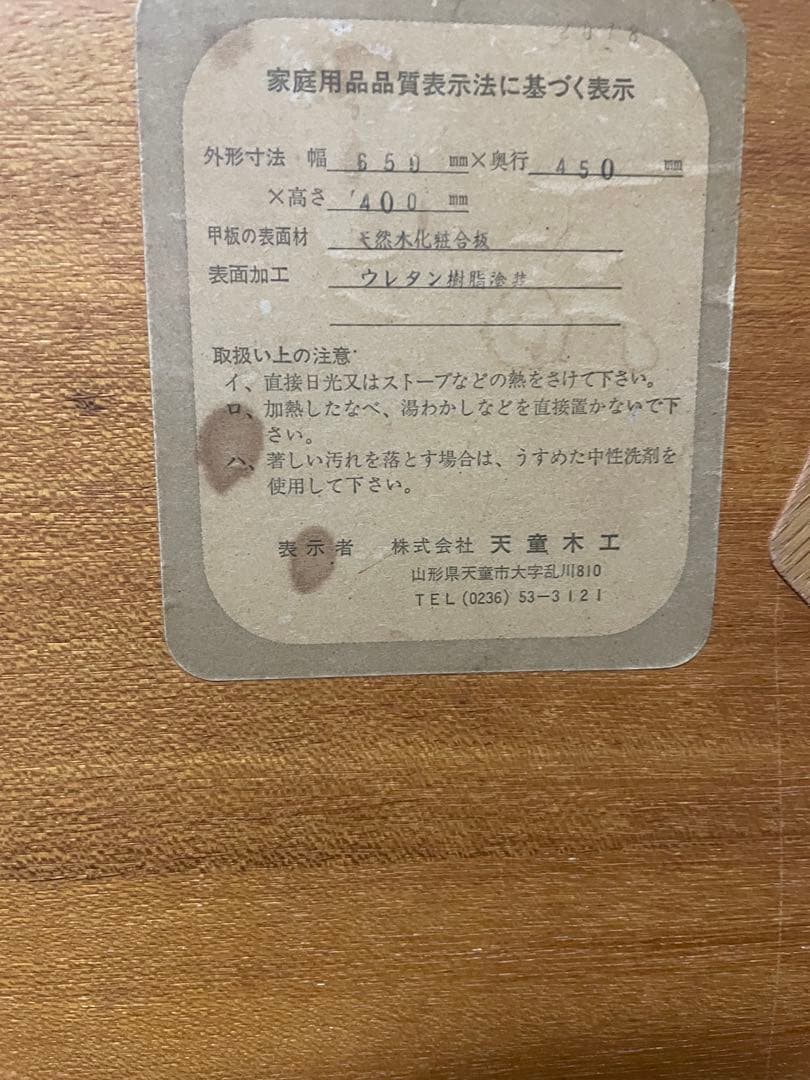 家庭用品品質表示法に基づく表示
外形寸法 幅 650 mm×奥行 450 mm
×高さ 400 mm
甲板の表面材 天然木化粧合板
表面加工 ウレタン樹脂塗装
取扱い上の注意
イ、直接日光又はストーブなどの熱をさけて下さい。
ロ、加熱したなべ、湯わかしなどを直接置かないで下
さい。
ハ、著しい汚れを落とす場合は、うすめた中性洗剤を
使用して下さい。
表示者 株式会社 天童木工
山形県天童市大字乱川810
TEL(0236) 53-3121